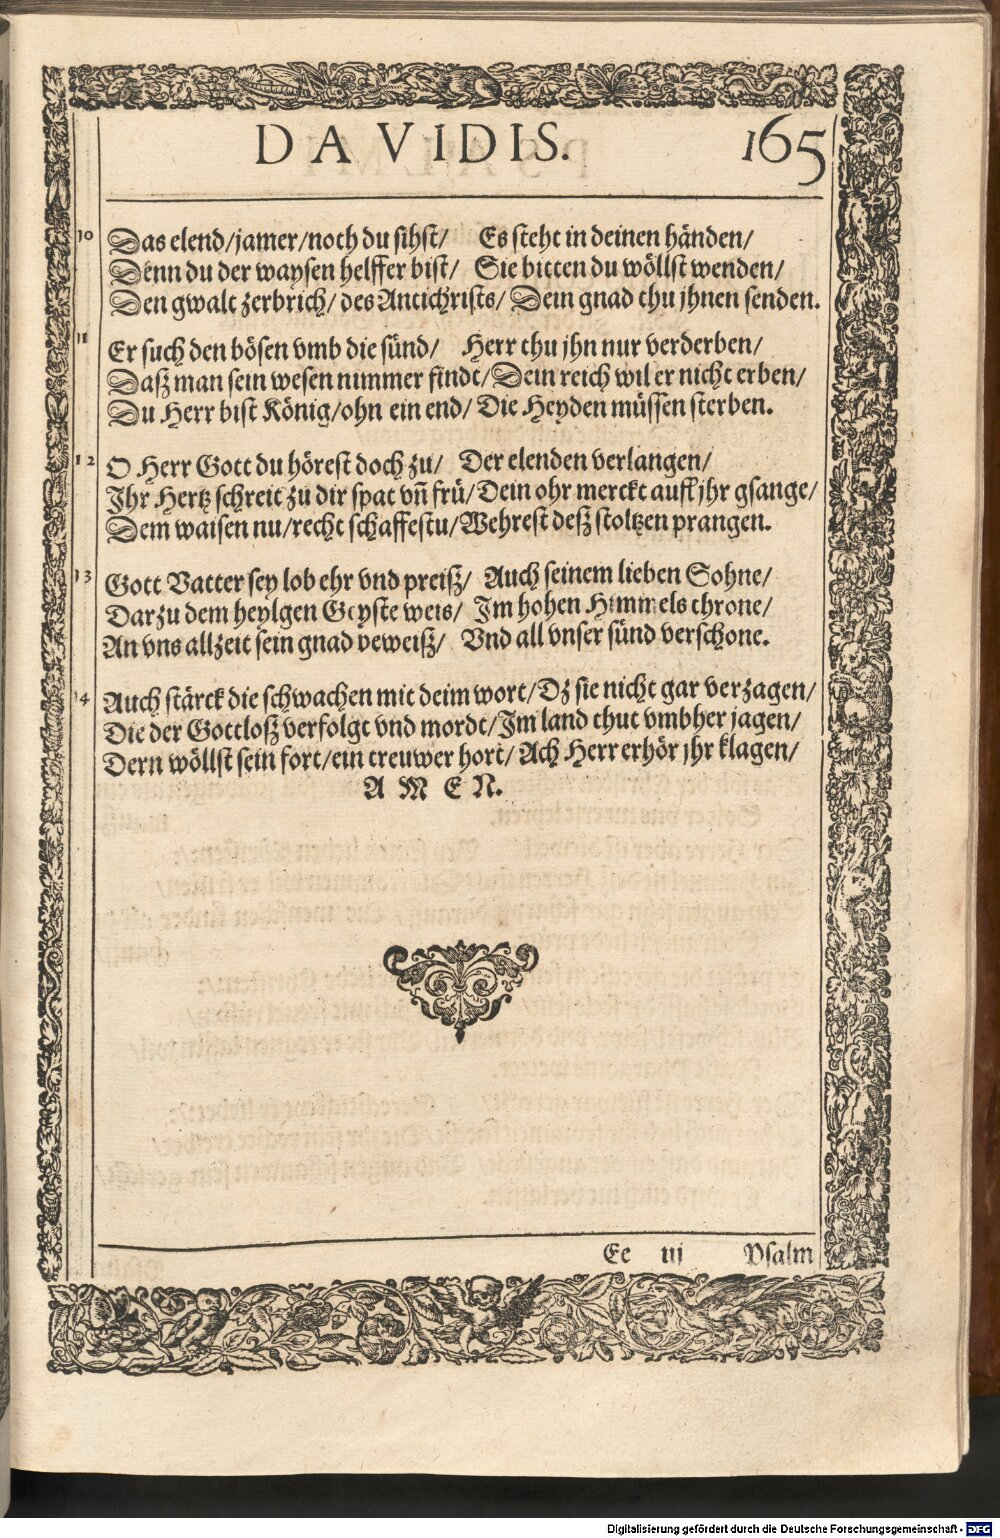 DAVIDIS. 165
10 Das elend/jamer/noch du sihst/ Es steht in deinen händen/
Denn du der waysen helffer bist/ Sie bitten du wöllst wenden/
Den gwalt zerbrich/ des Antichrists/ Dein gnad thu jhnen senden.
11 Er such den bösen vmb die sünd/ Herr thu jhn nur verderben/
Dasz man sein wesen nimmer findt/ Dein reich wil er nicht erben/
Du Herr bist König/ohn ein end/ Die Heyden müssen sterben.
12 O Herr Gott du hörest doch zu/ Der elenden verlangen/
Jhr Hertz schreit zu dir spat vñ frü/ Dein ohr merckt auff jhr gsange/
Dem waisen nu/recht schaffestu/ Wehrest desz stoltzen prangen.
13 Gott Vatter sey lob ehr vnd preisz/ Auch seinem lieben Sohne/
Darzu dem heylgen Geyste weis/ Jm hohen Himmels throne/
An vns allzeit sein gnad beweisz/ Vnd all vnser sünd verschone.
14 Auch stärck die schwachen mit deim wort/ Dz sie nicht gar verzagen/
Die der Gottlosz verfolgt vnd mordt/ Jm land thut vmbher jagen/
Dern wöllst sein fort/ein treuwer hort/ Ach Herr erhör jhr klagen/
A M E N.
Ee iij Psalm
Digitalisierung gefördert durch die Deutsche Forschungsgemeinschaft - DFG